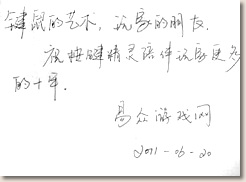 键鼠的艺术，玩家的朋友．
祝按键精灵陪伴玩家更多
的十年．
易众游戏网
2011-06-20